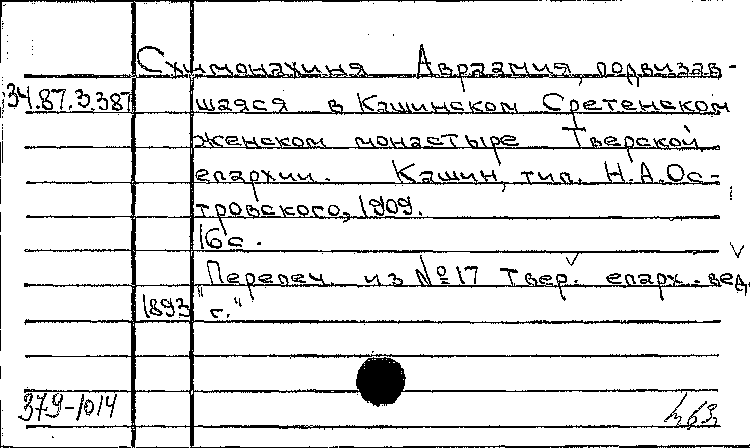 Схимонахиня Авраамия, подвизав-
34.87.3.387 шаяся в Кашинском Сретенском
женском монастыре Тверской
епархии. Кашин, тип. Н.А.Ос-
тровского, 1909.
16 с.
"Перепеч. из №17 Твер. епарх. вед.
1893 г."
379-1014